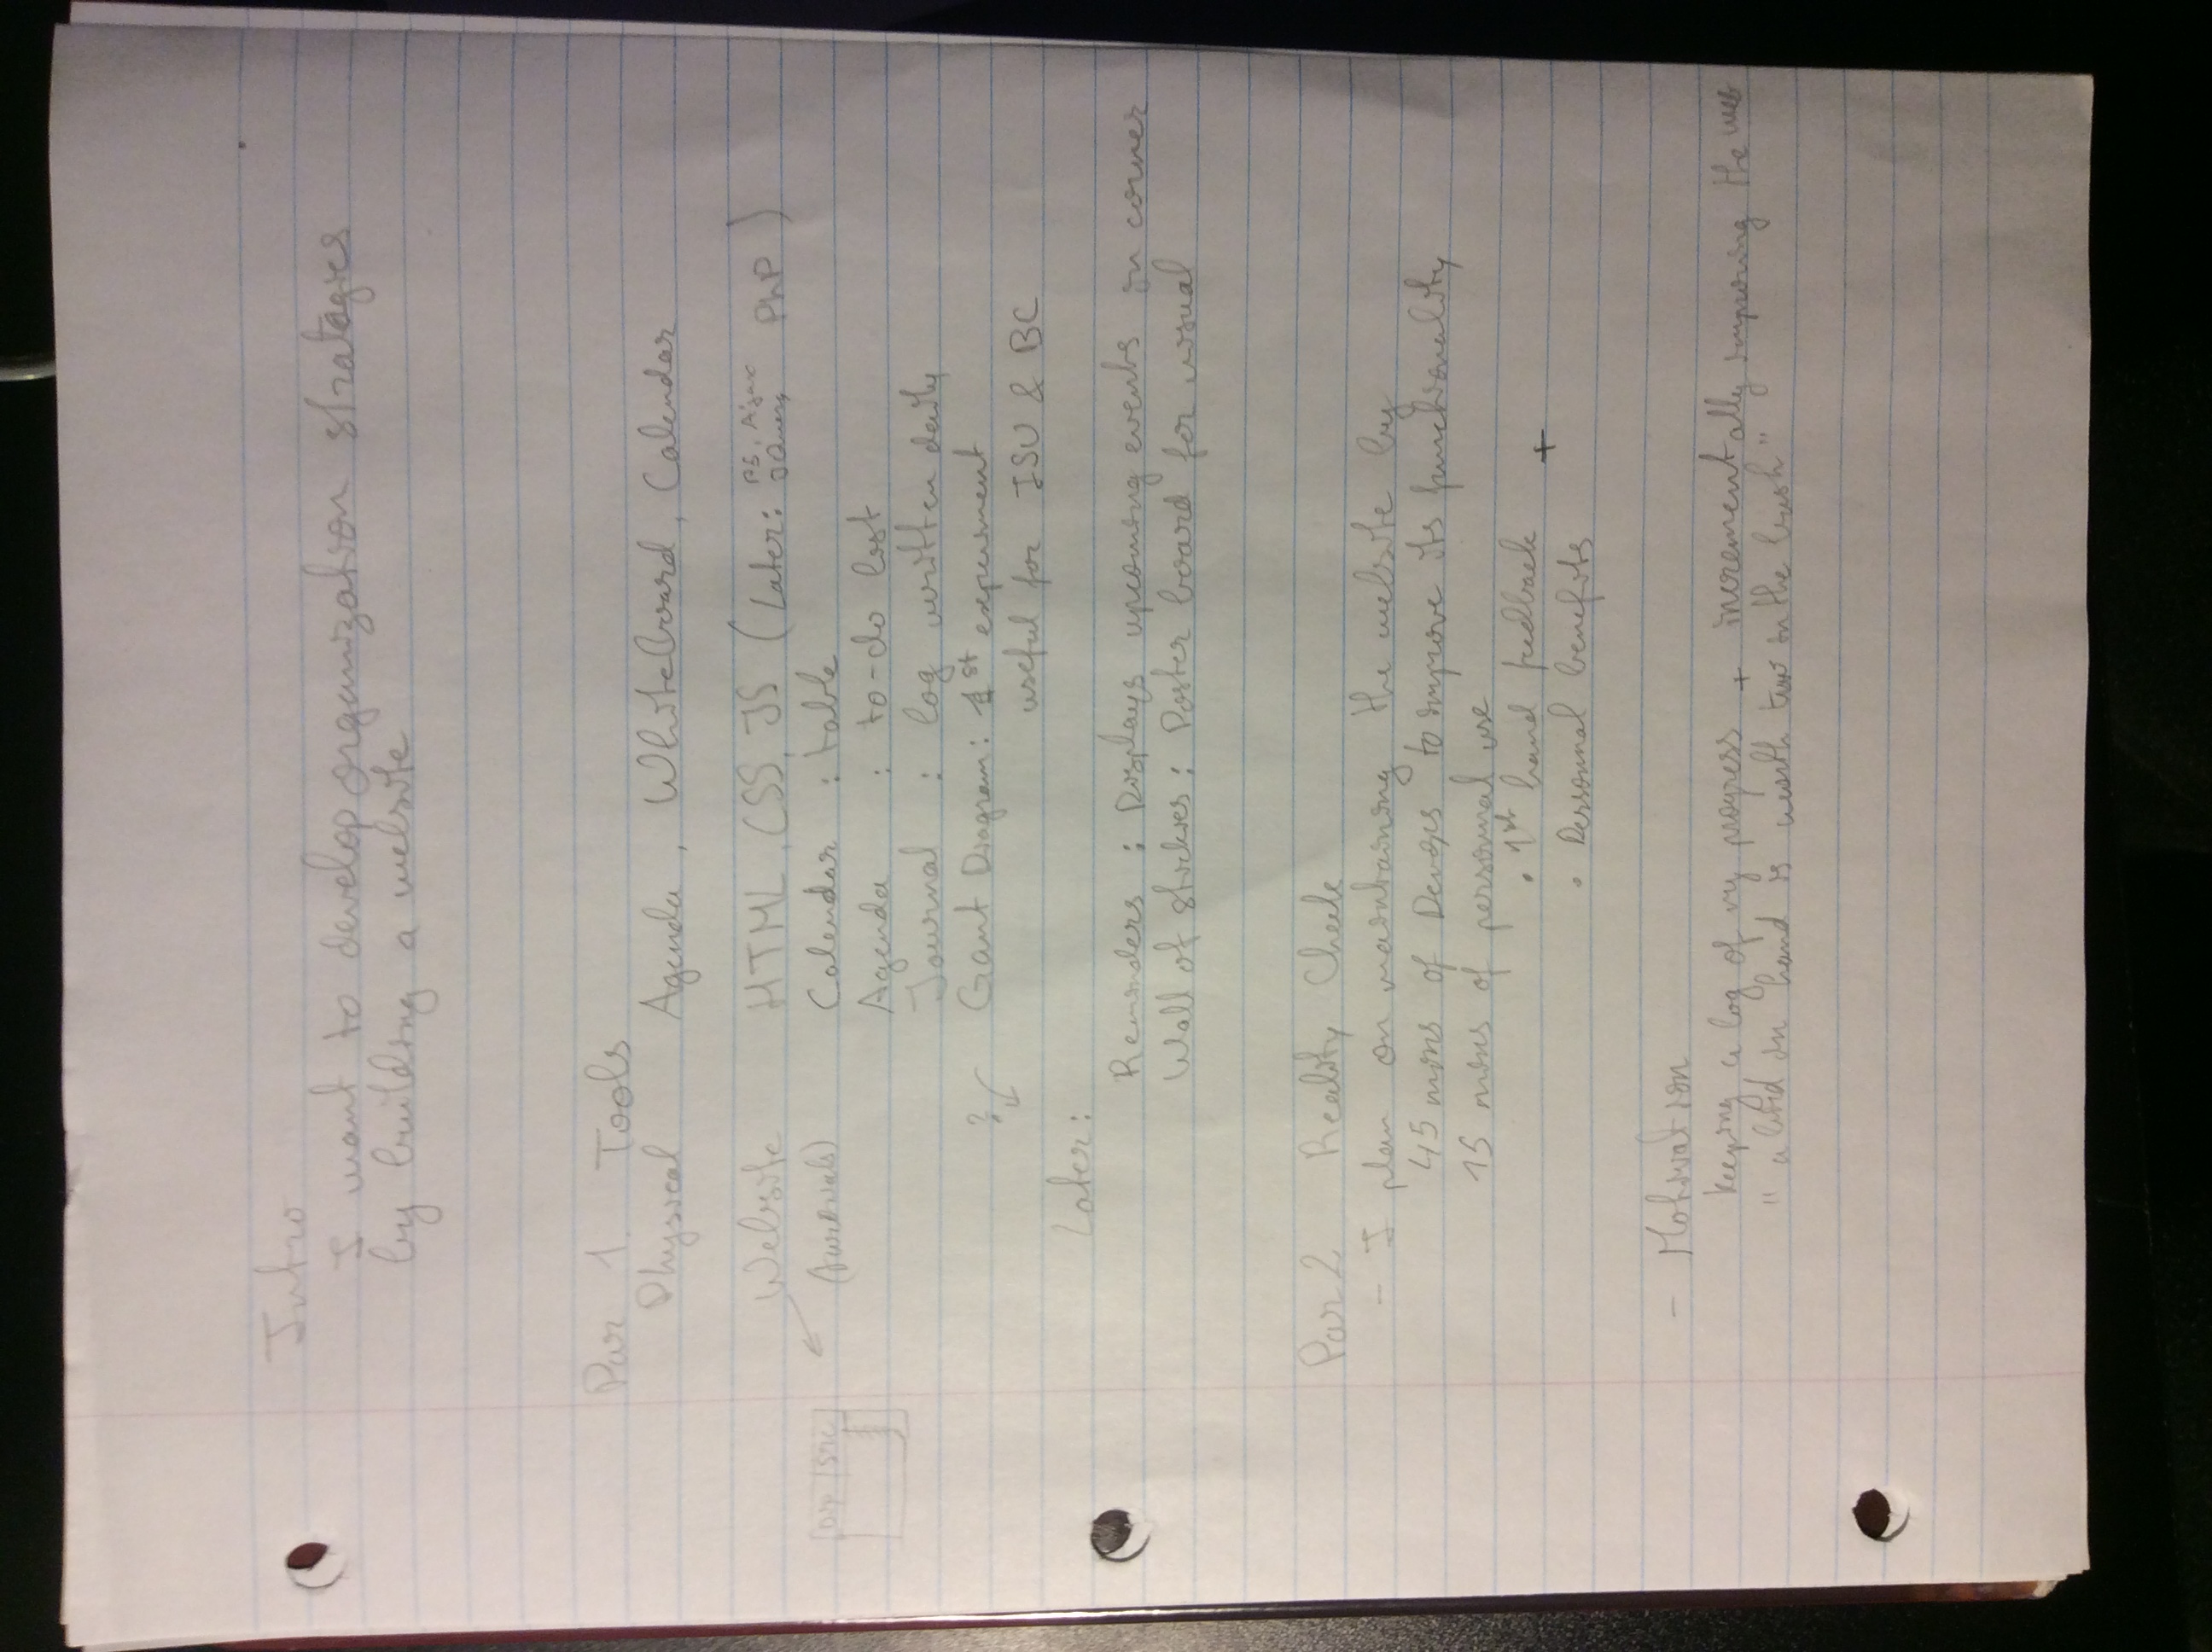 Intro
I want to develop organization stratagies
by building a website
Par 1. Tools
Physical Agenda, Whiteboard, Calendar
Website HTML, CSS, JS (Later: P5, Ajax JQuery PhP)
Disp | Src
(tutorials) Calendar : table
Agenda : to-do list
Journal : log written daily
? Gant Diagram: 1st experiment
useful for ISU & BC
Later:
Reminders : Displays upcoming events in corner
Wall of stickies : Poster board for visual
Par 2 Reality Check
- I plan on maintaining the website by
45 mins of Devops to improve its functionality
15 mins of personnal use
• 1st hand feedback +
• Personnal benefits
- Motivation
Keeping a log of my progress + incrementally improving the web
" a bird in hand is worth two in the bush "